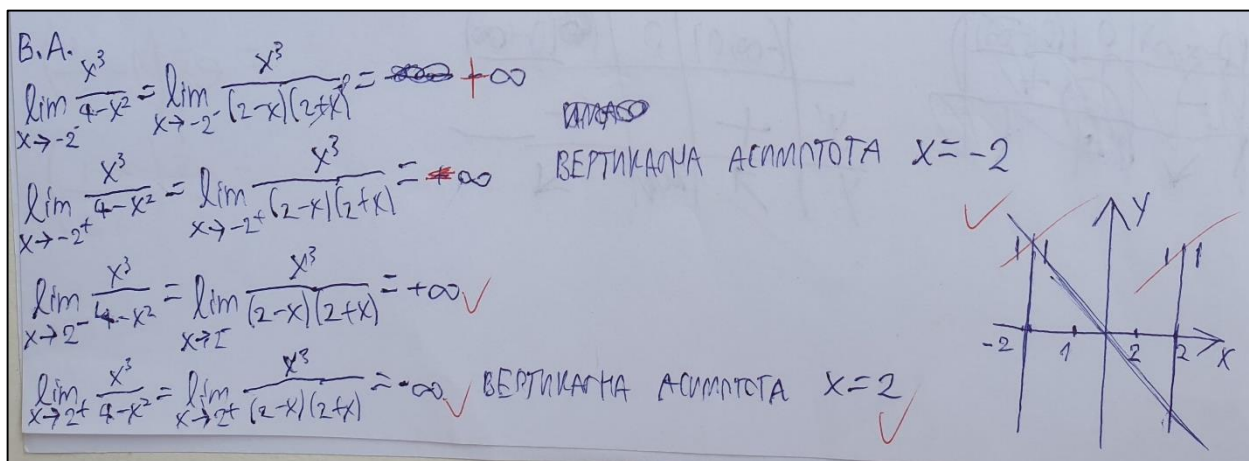 В.А.
lim x→-2⁻ x³/(4-x²) = lim x→-2⁻ x³/((2-x)(2+x)) = +∞
lim x→-2⁺ x³/(4-x²) = lim x→-2⁺ x³/((2-x)(2+x)) = -∞
ВЕРТИКАЛНА АСИМПТОТА x=-2
lim x→2⁻ x³/(4-x²) = lim x→2⁻ x³/((2-x)(2+x)) = +∞
lim x→2⁺ x³/(4-x²) = lim x→2⁺ x³/((2-x)(2+x)) = -∞ ВЕРТИКАЛНА АСИМПТОТА x=2
y
-2 1 2 2 x